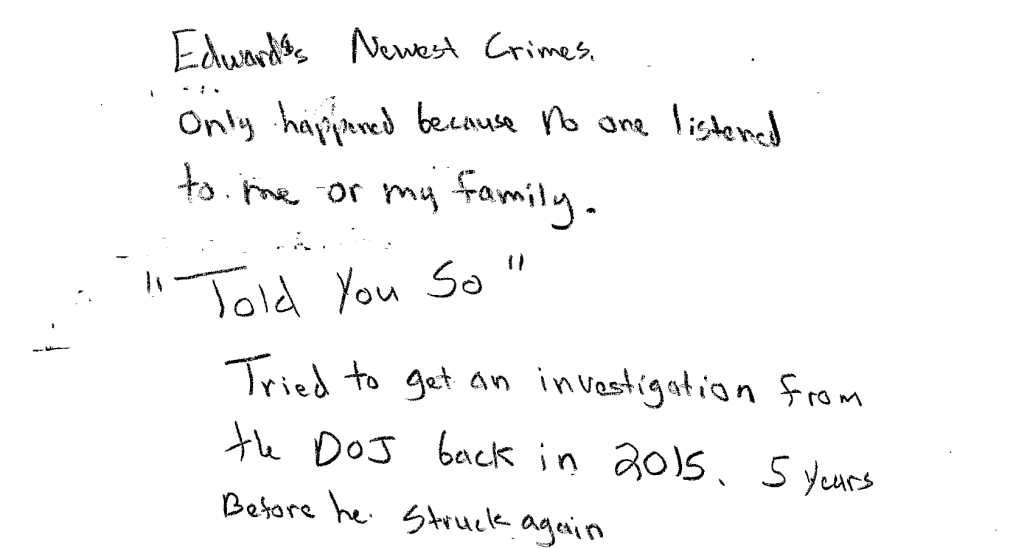 Edward's Newest Crimes.
Only happened because no one listened
to me or my family.
"Told You So"
Tried to get an investigation from
the DOJ back in 2015. 5 years
Before he struck again